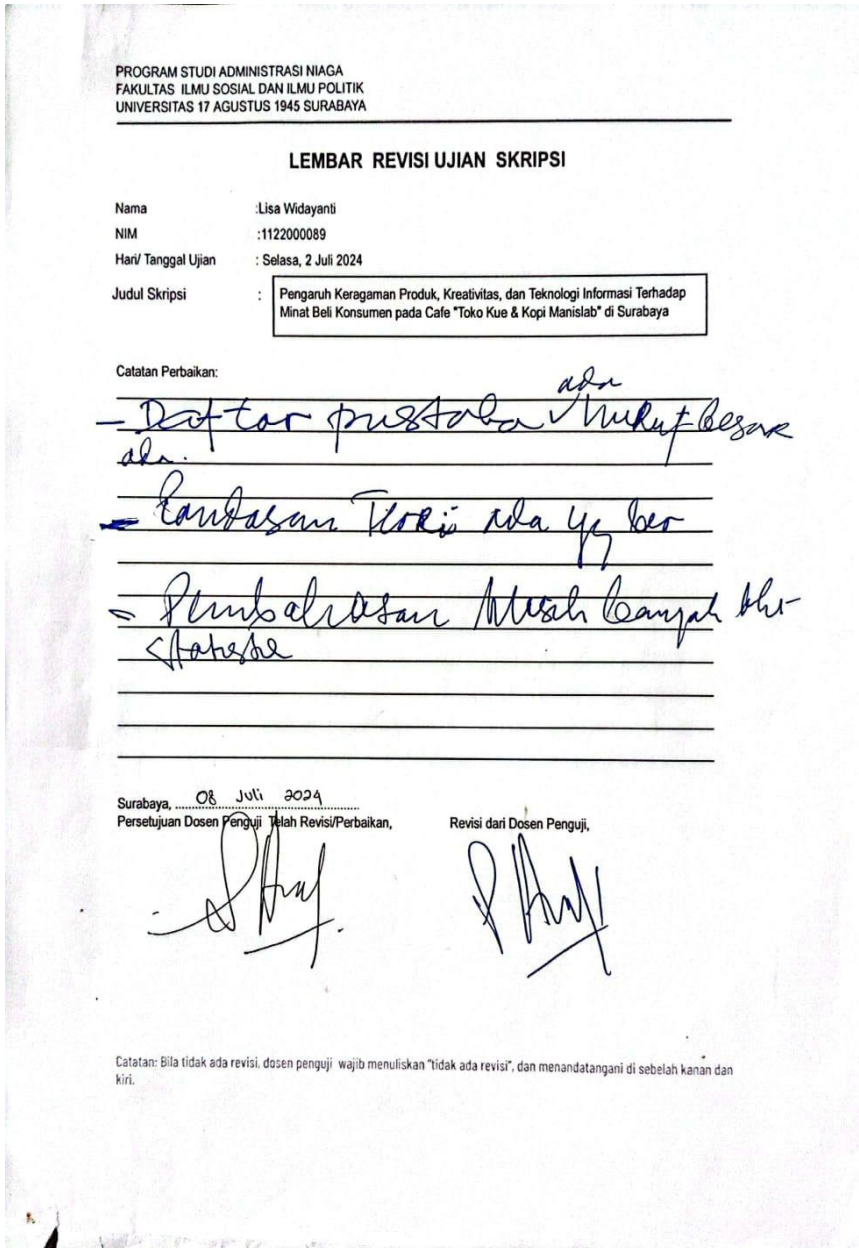 PROGRAM STUDI ADMINISTRASI NIAGA
FAKULTAS ILMU SOSIAL DAN ILMU POLITIK
UNIVERSITAS 17 AGUSTUS 1945 SURABAYA
LEMBAR REVISI UJIAN SKRIPSI
Nama :Lisa Widayanti
NIM :1122000089
Hari/ Tanggal Ujian : Selasa, 2 Juli 2024
Judul Skripsi : Pengaruh Keragaman Produk, Kreativitas, dan Teknologi Informasi Terhadap
Minat Beli Konsumen pada Cafe "Toko Kue & Kopi Manislab" di Surabaya
Catatan Perbaikan:
ada
- Daftar pustaka huruf besar
- Landasan Teori ada yg
- Pembahasan Masih banyak
Surabaya, 08 Juli 2024
Persetujuan Dosen Penguji Telah Revisi/Perbaikan, Revisi dari Dosen Penguji,
Catatan: Bila tidak ada revisi, dosen penguji wajib menuliskan "tidak ada revisi", dan menandatangani di sebelah kanan dan
kiri.